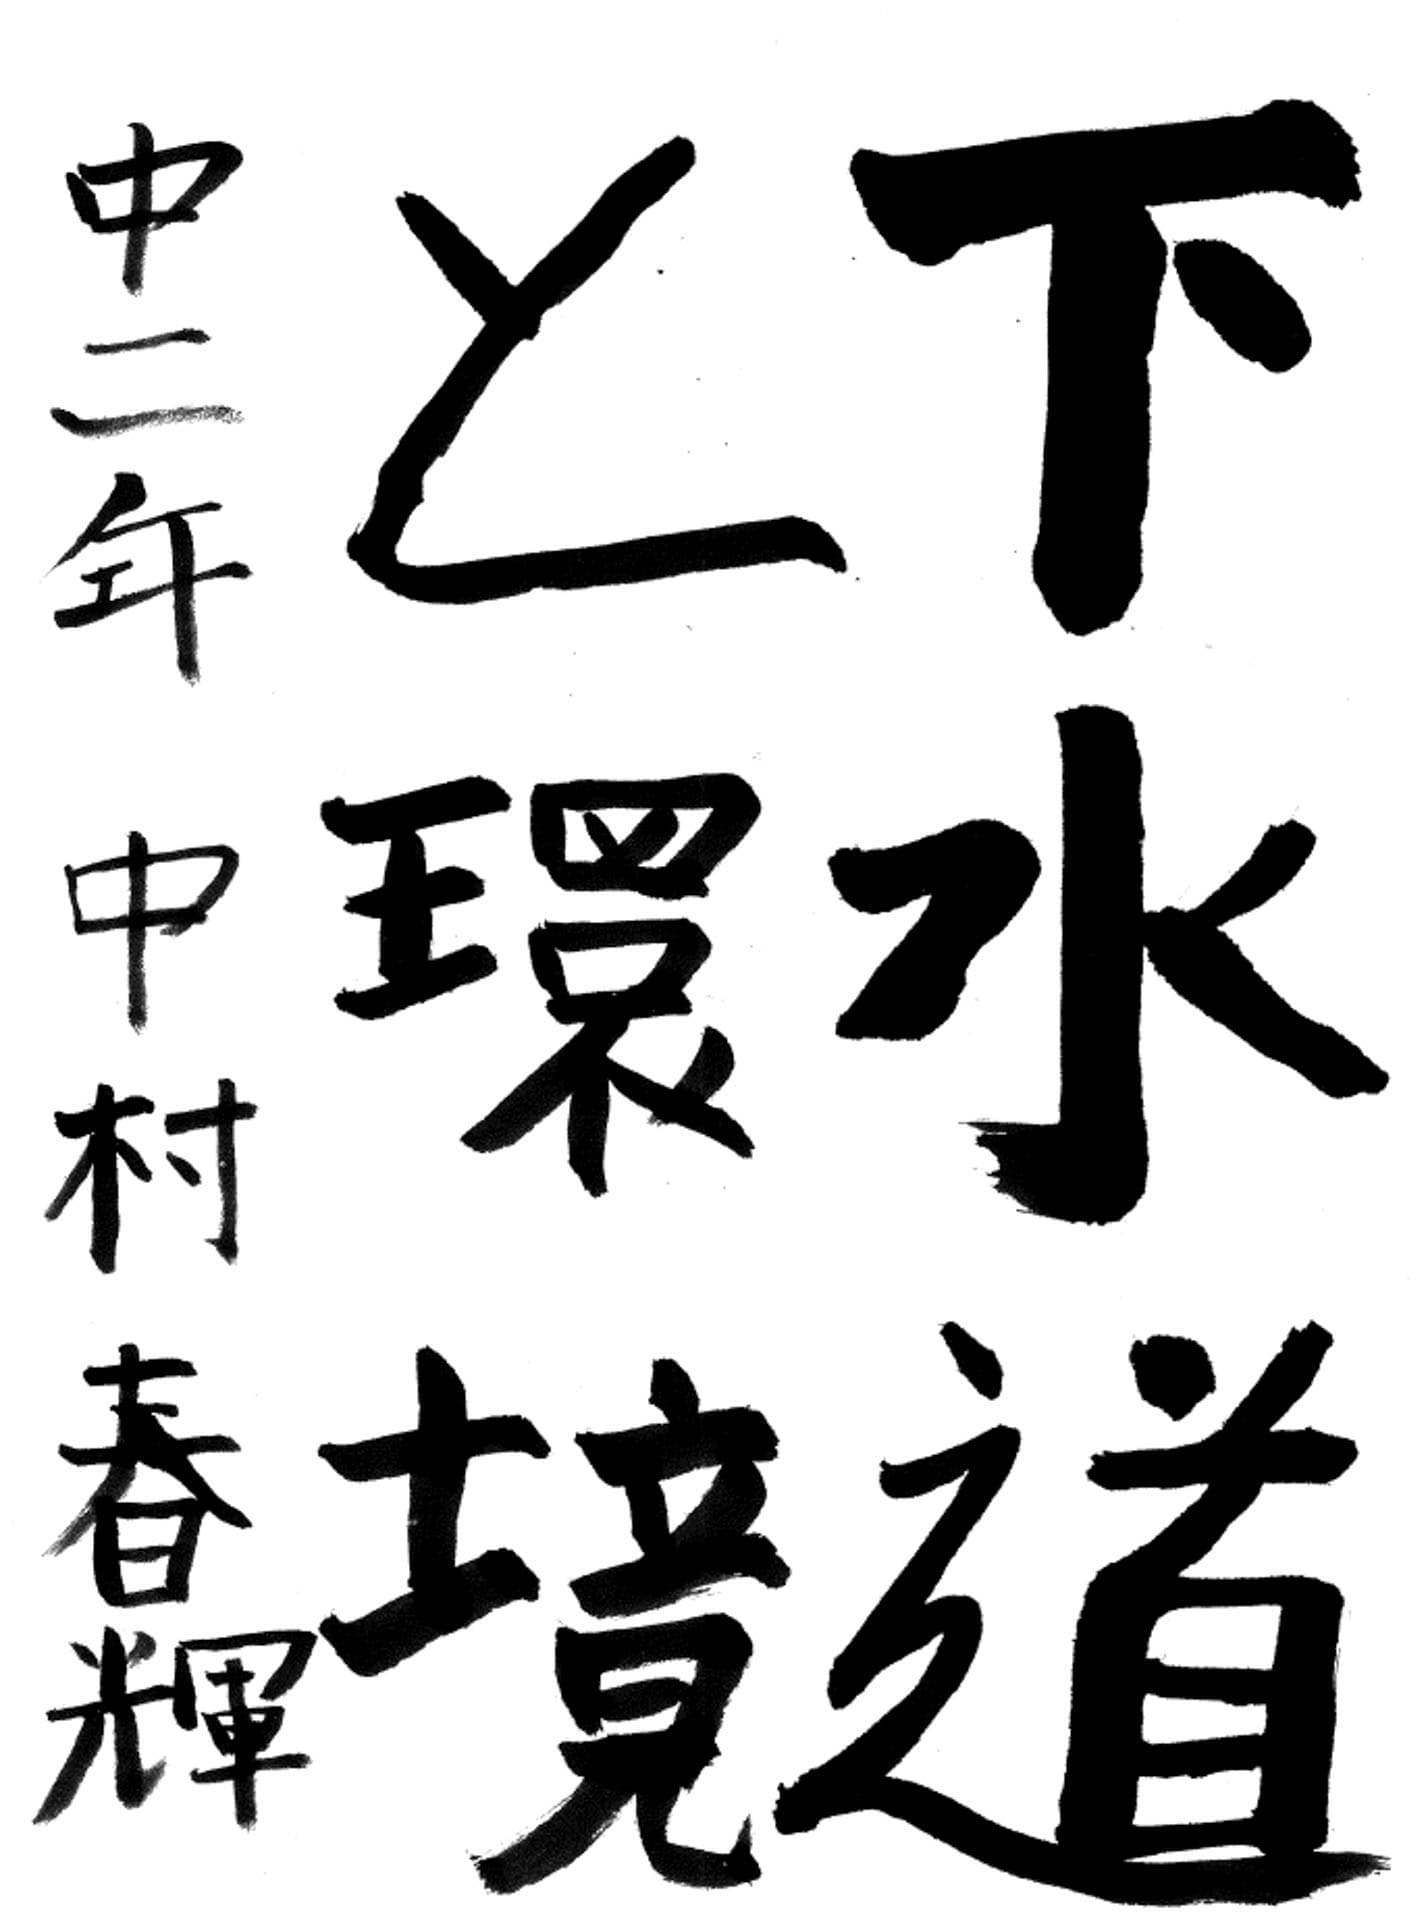 下水道
と環境
中二年 中村春輝